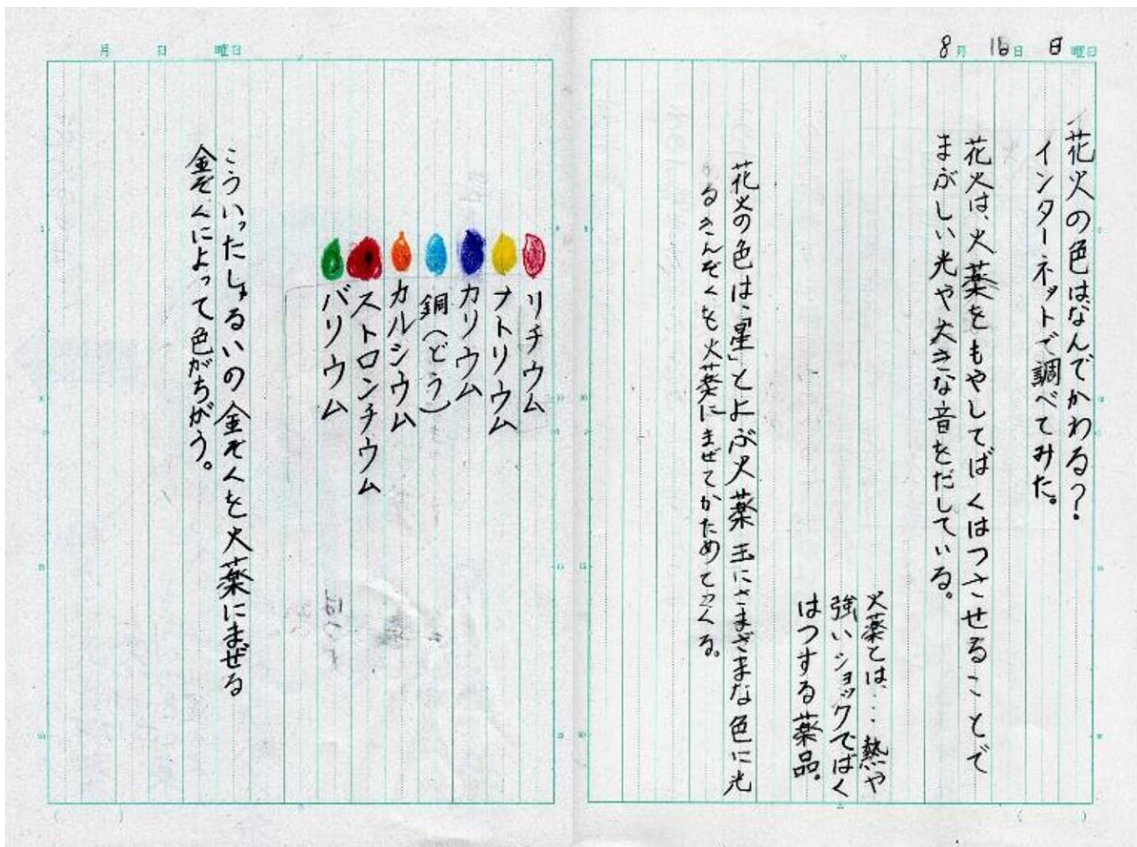 8月18日 日曜日
花火の色はなんでかわる?
インターネットで調べてみた。
花火は、火薬をもやしてばくはつさせることで
まぶしい光や大きな音をだしている。
火薬とは…熱や
強いショックでばく
はつする薬品。
花火の色は「星」とよぶ火薬玉にさまざまな色に光
るきんぞくを火薬にまぜてかためてつくる。
月 日 曜日
リチウム
ナトリウム
カリウム
銅(どう)
カルシウム
ストロンチウム
バリウム
こういったしゅるいの金ぞくを火薬にまぜる
金ぞくによって色がちがう。